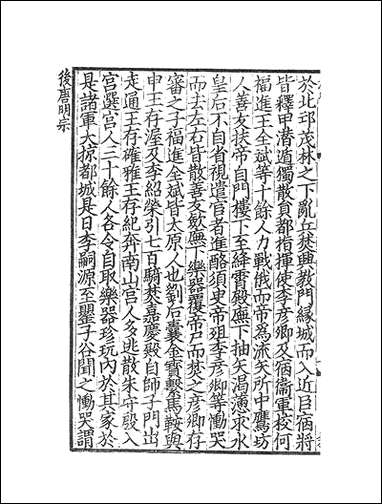 於北邙茂林之下亂兵焚興教門緣城而入近臣宿將
皆釋甲潛遁獨散員都指揮使李彥卿及宿衞軍校何
福進王全斌等十餘人力戰俄而帝爲流矢所中鷹坊
人善友扶帝自門樓下至絳霄殿廡下抽矢渴懣求水
皇后不自省視遣宦者進酪須臾帝殂李彥卿等慟哭
而去左右皆散善友斂廡下樂器覆帝尸而焚之彥卿存
審之子福進全斌皆太原人也劉后囊金寶繫馬鞍與
申王存渥及李紹榮引七百騎焚嘉慶殿自師子門出
走通王存確雅王存紀奔南山宮人多逃散朱守殷入
宮選宮人三十餘人各令自取樂器珍玩內於其家於
是諸軍大掠都城是日李嗣源至罌子谷聞之慟哭謂
後唐明宗